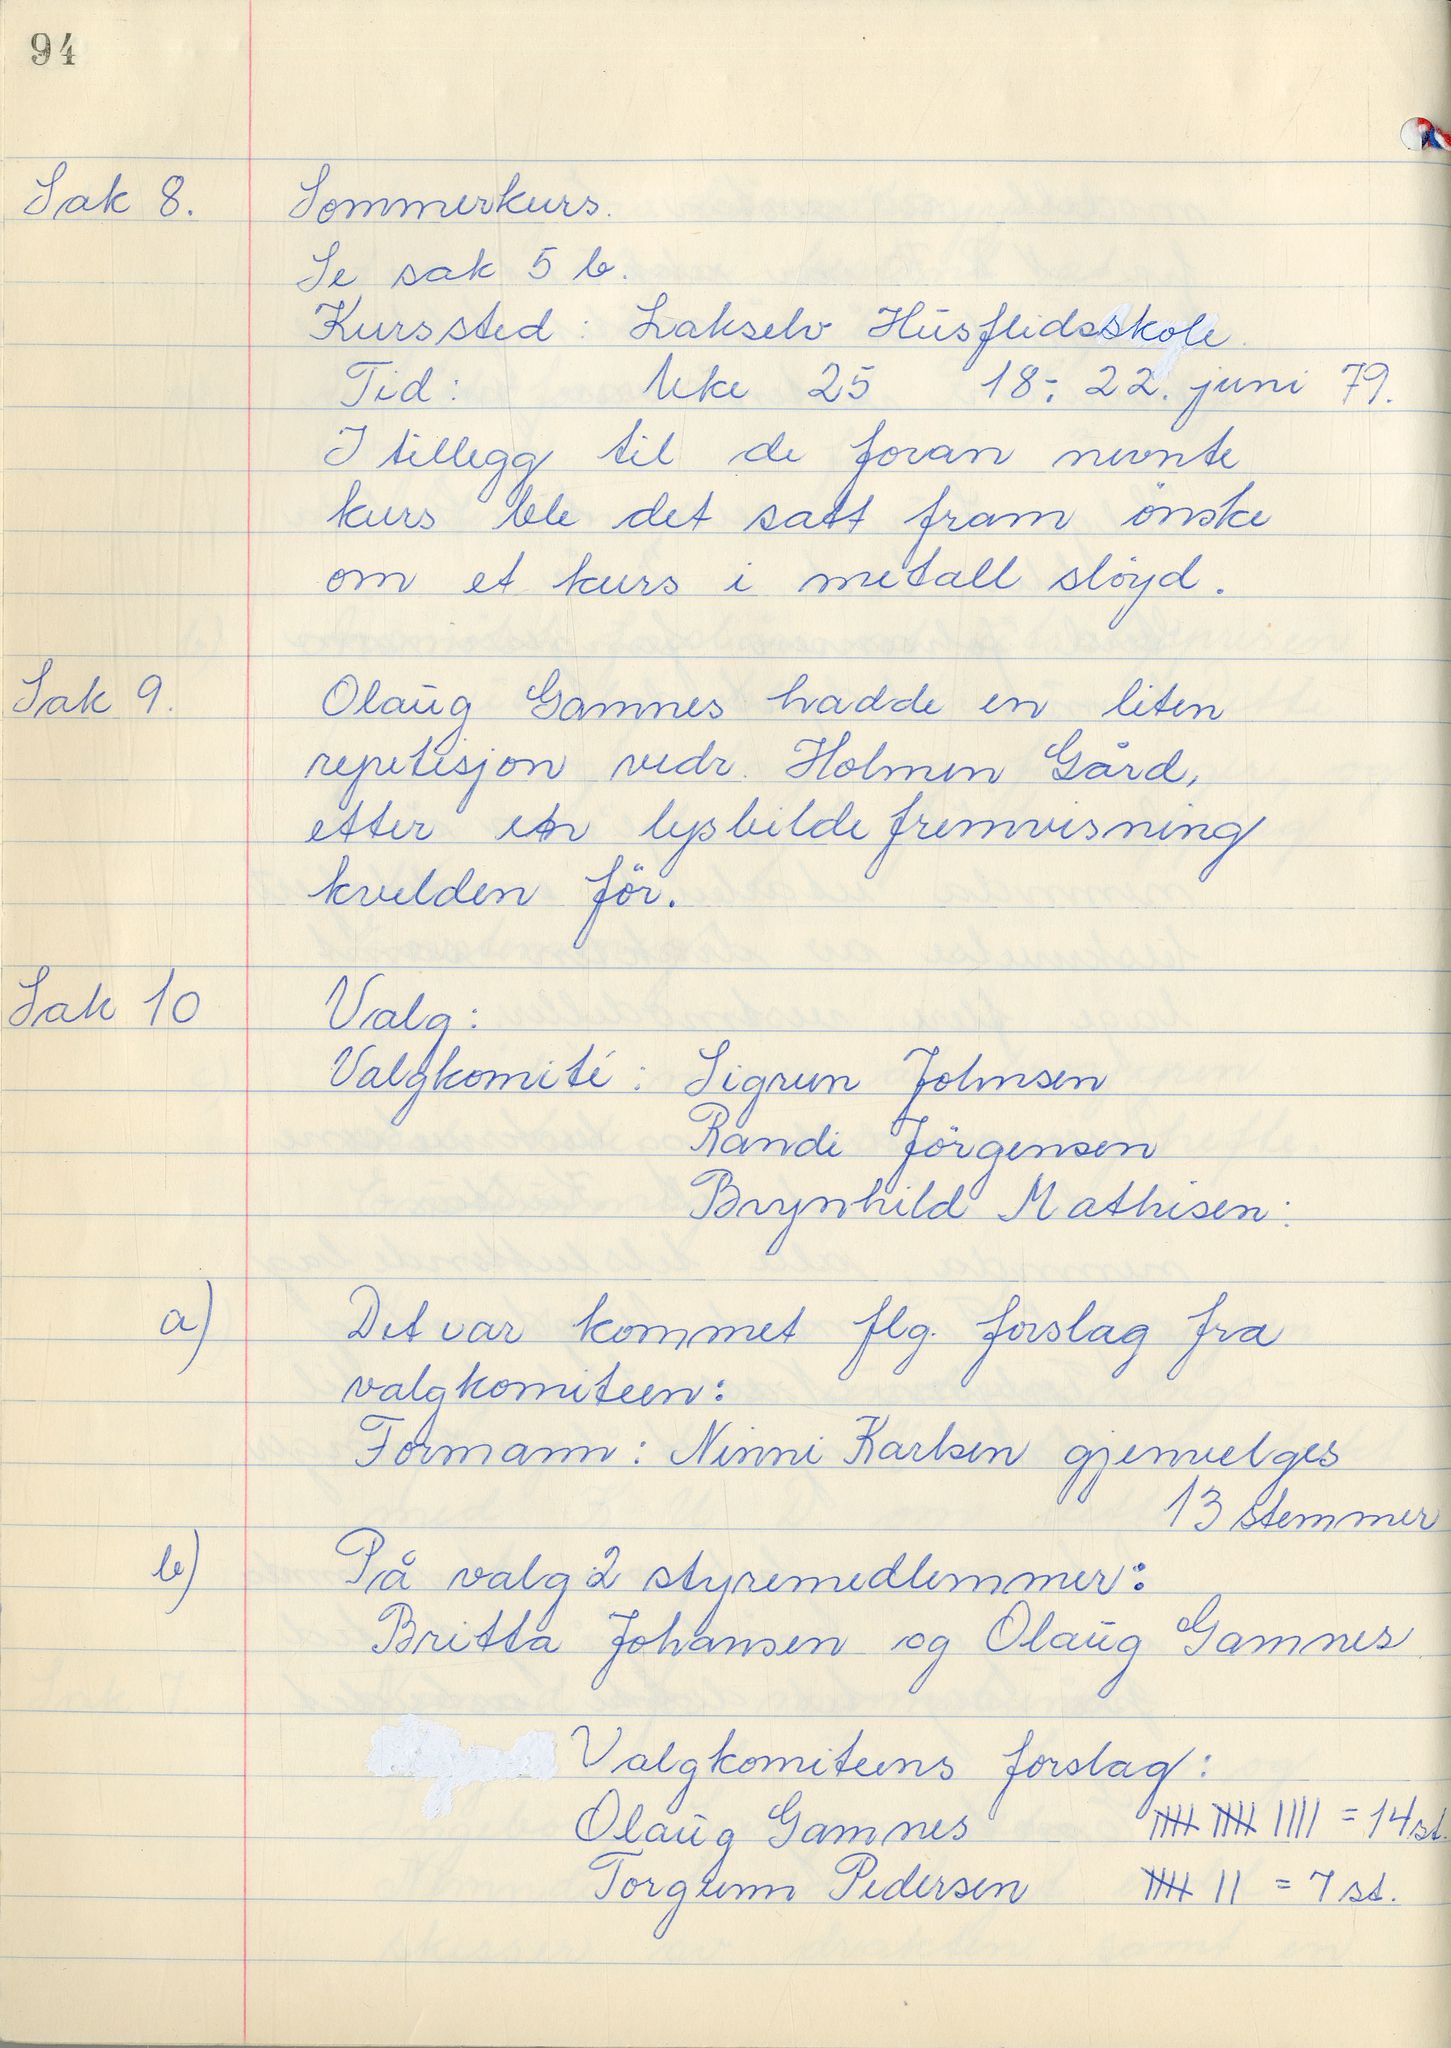 94
Sak 8. Sommerkurs.
Se sak 5 b.
Kurssted: Lakselv Húsflidsskole.
Tid: Uke 25 18.- 22. juni 79.
I tillegg til de foran nevnte
kurs ble det satt fram önske
om et kurs i metall slöyd.
Sak 9. Olaúg Gamnes hadde en liten
repetisjon vedr. Holmen Gård,
etter en lysbilde fremvisning
kvelden för.
Sak 10 Valg:
Valgkomité: Sigrun Johnsen
Randi Jörgensen
Brynhild Mathisen:
a) Det var kommet flg. forslag fra
valgkomiteen:
Formann: Ninni Karlsen gjenvelges
13 stemmer
b) På valg 2 styremedlemmer:
Britta Johansen og Olaúg Gamnes
Valgkomiteens forslag:
Olaúg Gamnes |||| |||| |||| = 14 st.
Torgunn Pedersen |||| || = 7 st.